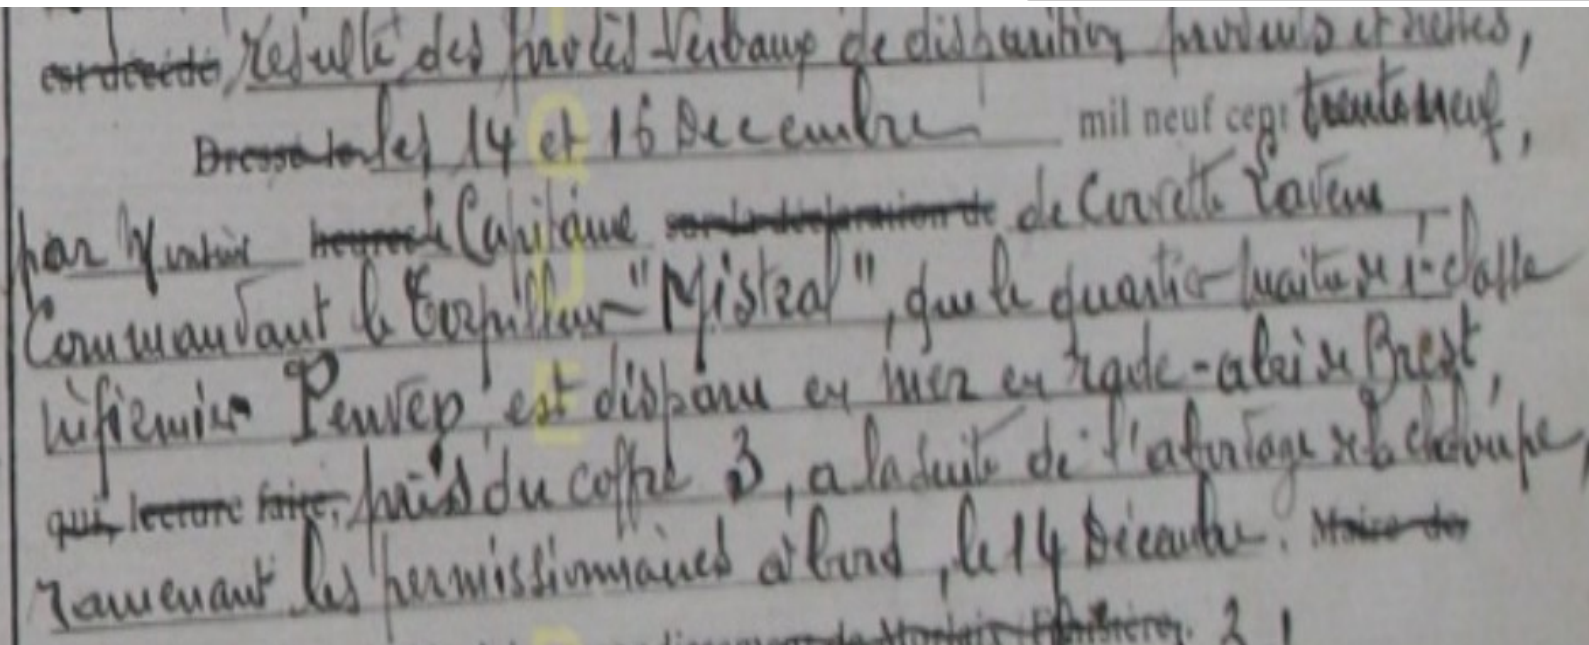 est décédé résulte des procès-Verbaux de disparition produits et
Dressé le les 14 et 16 Decembre mil neuf cent trente neuf,
par Monsieur heures le Capitaine sur la déclaration de de Corvette Laveue
Commandant le Torpilleur "Mistral", que le quartier-maitre de 1e classe
infirmier Penven, est disparu en mer en rade-abri de Brest,
qui, lecture faite, près du coffre 3, a la suite de l'abordage de la chaloupe,
ramenant les permissionnaires à bord, le 14 Décembre. Maire de